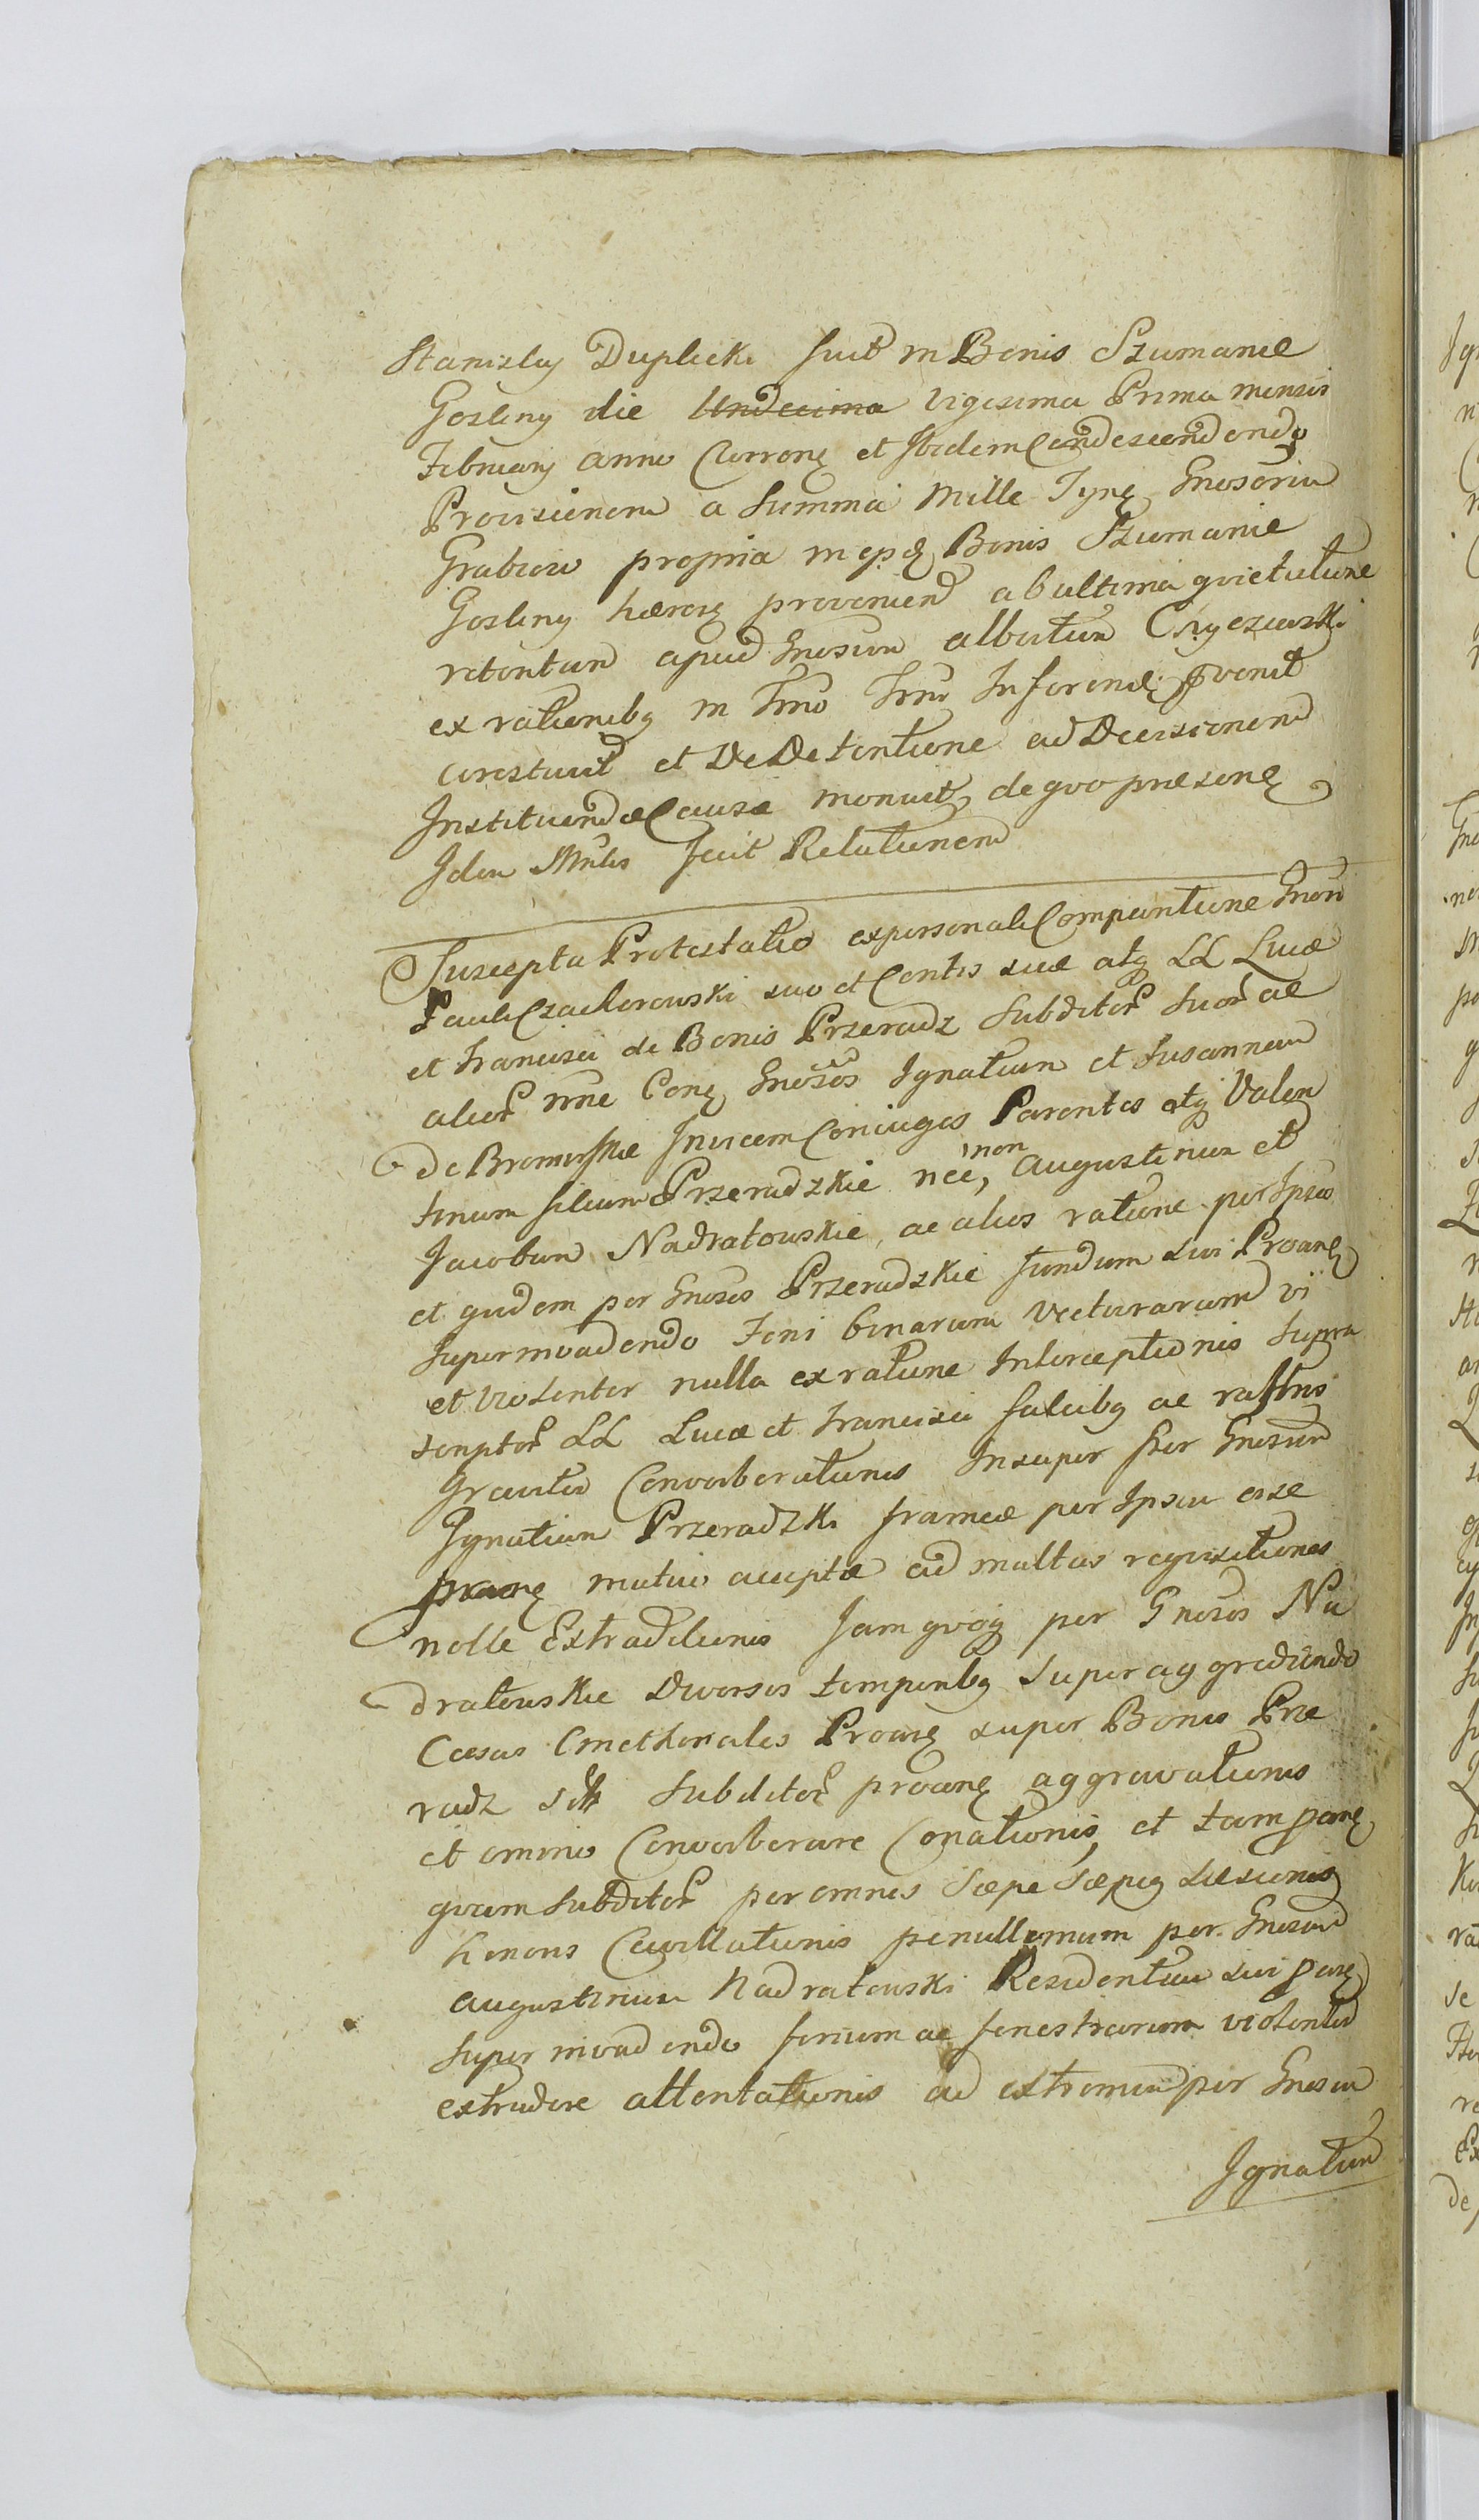 Stanislaÿ Duplicki fuit in Bonis Szumanie
Gosliny die Undecima Vigesima Prima mensis
Februarÿ anno Currenę et Ibidem Condescendendo
Provisionem a Summa Mille Tynę Gnosorum
Grabow propria in Bonis Szumanie
Gosliny hæreę provenień ab ultima quietatione
retentam apud Gnosum Albertum
ex rationibɋ in Trno Trnr Inferendę
arestavit et De Detentione ad Decisionem
Instituendæ Causæ monuit, de quo præsenę
Idem Mnlis fecit Relationem
Suscepta Protestatio ex personali Comparitione Gnosi
Pauli Czachorowski suo et Contis suæ atɋ LL Lucæ
et Francisci de Bonis Przeradz Subditor Suor ac
alior nne Conę Gnosos Ignatium et Susannam
de Bromirskie Invicem Coniuges Parentes atɋ Valen
tinum filium Przeradzkie nec, non Augustinum et
Jacobum Nadratowskie, ac alios ratione per Ipsos
et quidem per Gnosos Przeradzkie fundum sui Proanę
Superinvadendo Feni binarum Vecturarum vi
et Violenter nulla ex ratione Interceptionis Supra
scriptor LL Lucæ et Francisci falcibɋ ac rastris
Graviter Converberationis Insuper Per Gnosum
Ignatium Przeradzki frameæ per Ipsum a se
mutuo acceptæ ad multas requisitiones
nolle Extraditionis Jam quoɋ per Gnosos Na
dratowskie Diversis temporibɋ Superaggrediendo
Casas Cmethonales Proanę super Bonis Prze
radz Subditor proanę aggravationis
et omnino Converberare Conationis, et tam panę
quam Subditor per omnes Sæpe Sæpiɋ Læsionis
honoris Cavillationis penultimum per Gnosum
Augustinum Nadratowski Residentiam sui panę
Super invadendo forium ac fenestrarum violenter
extrudere attentationis ad extremum per Gnosum
Ignatium